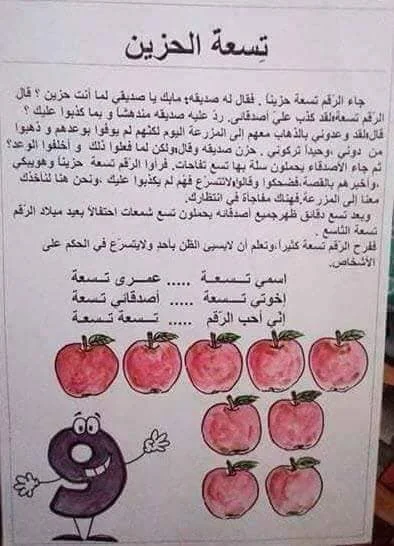 تِسعة الحزين
جاء الرّقم تسعة حزيناً . فقال له صديقه: مابك يا صديقي لما أنت حزين ؟ قال
الرقم تسعة،لقد كذب عليّ أصدقائي. ردّ عليه صديقه مندهشاً و بما كذبوا عليك ؟
قال،لقد وعدوني بالذهاب معهم إلى المزرعة اليوم لكنّهم لم يوفوا بوعدهم و ذهبوا
من دوني ،وحيداً تركوني . حزن صديقه وقال،ولكن لما فعلوا ذلك و أخلفوا الوعد؟
ثم جاء الأصدقاء يحملون سلة بها تسع تفاحات. فرأوا الرقم تسعة حزينا وهويبكي
،وأخبر هم بالقصة،فضحكوا وقالوا،لاتتسرّع فهم لم يكذبوا عليك ،ونحن هنا لناخذك
معنا إلى المزرعة.فهناك مفاجأة في انتظارك.
وبعد تسع دقائق ظهرجميع أصدقائه يحملون تسع شمعات احتفالاً بعيد ميلاد الرّقم
تسعة التاسع .
ففرح الرّقم تسعة كثيرا،وتعلم أن لايسيئ الظن بأحد ولايتسرّع في الحكم على
الأشخاص.
اسمي تــسـعــة ..... عمــرى تـسعة
إخوتي تــسعة ..... أصدقائي تسعة
إنّي أحب الرّقم ..... تــسعة تسعة
9